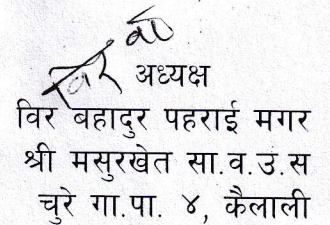 अध्यक्ष
विर बहादुर पहराई मगर
श्री मसुरखेत सा.व.उ.स
चुरे गा.पा. ४, कैलाली